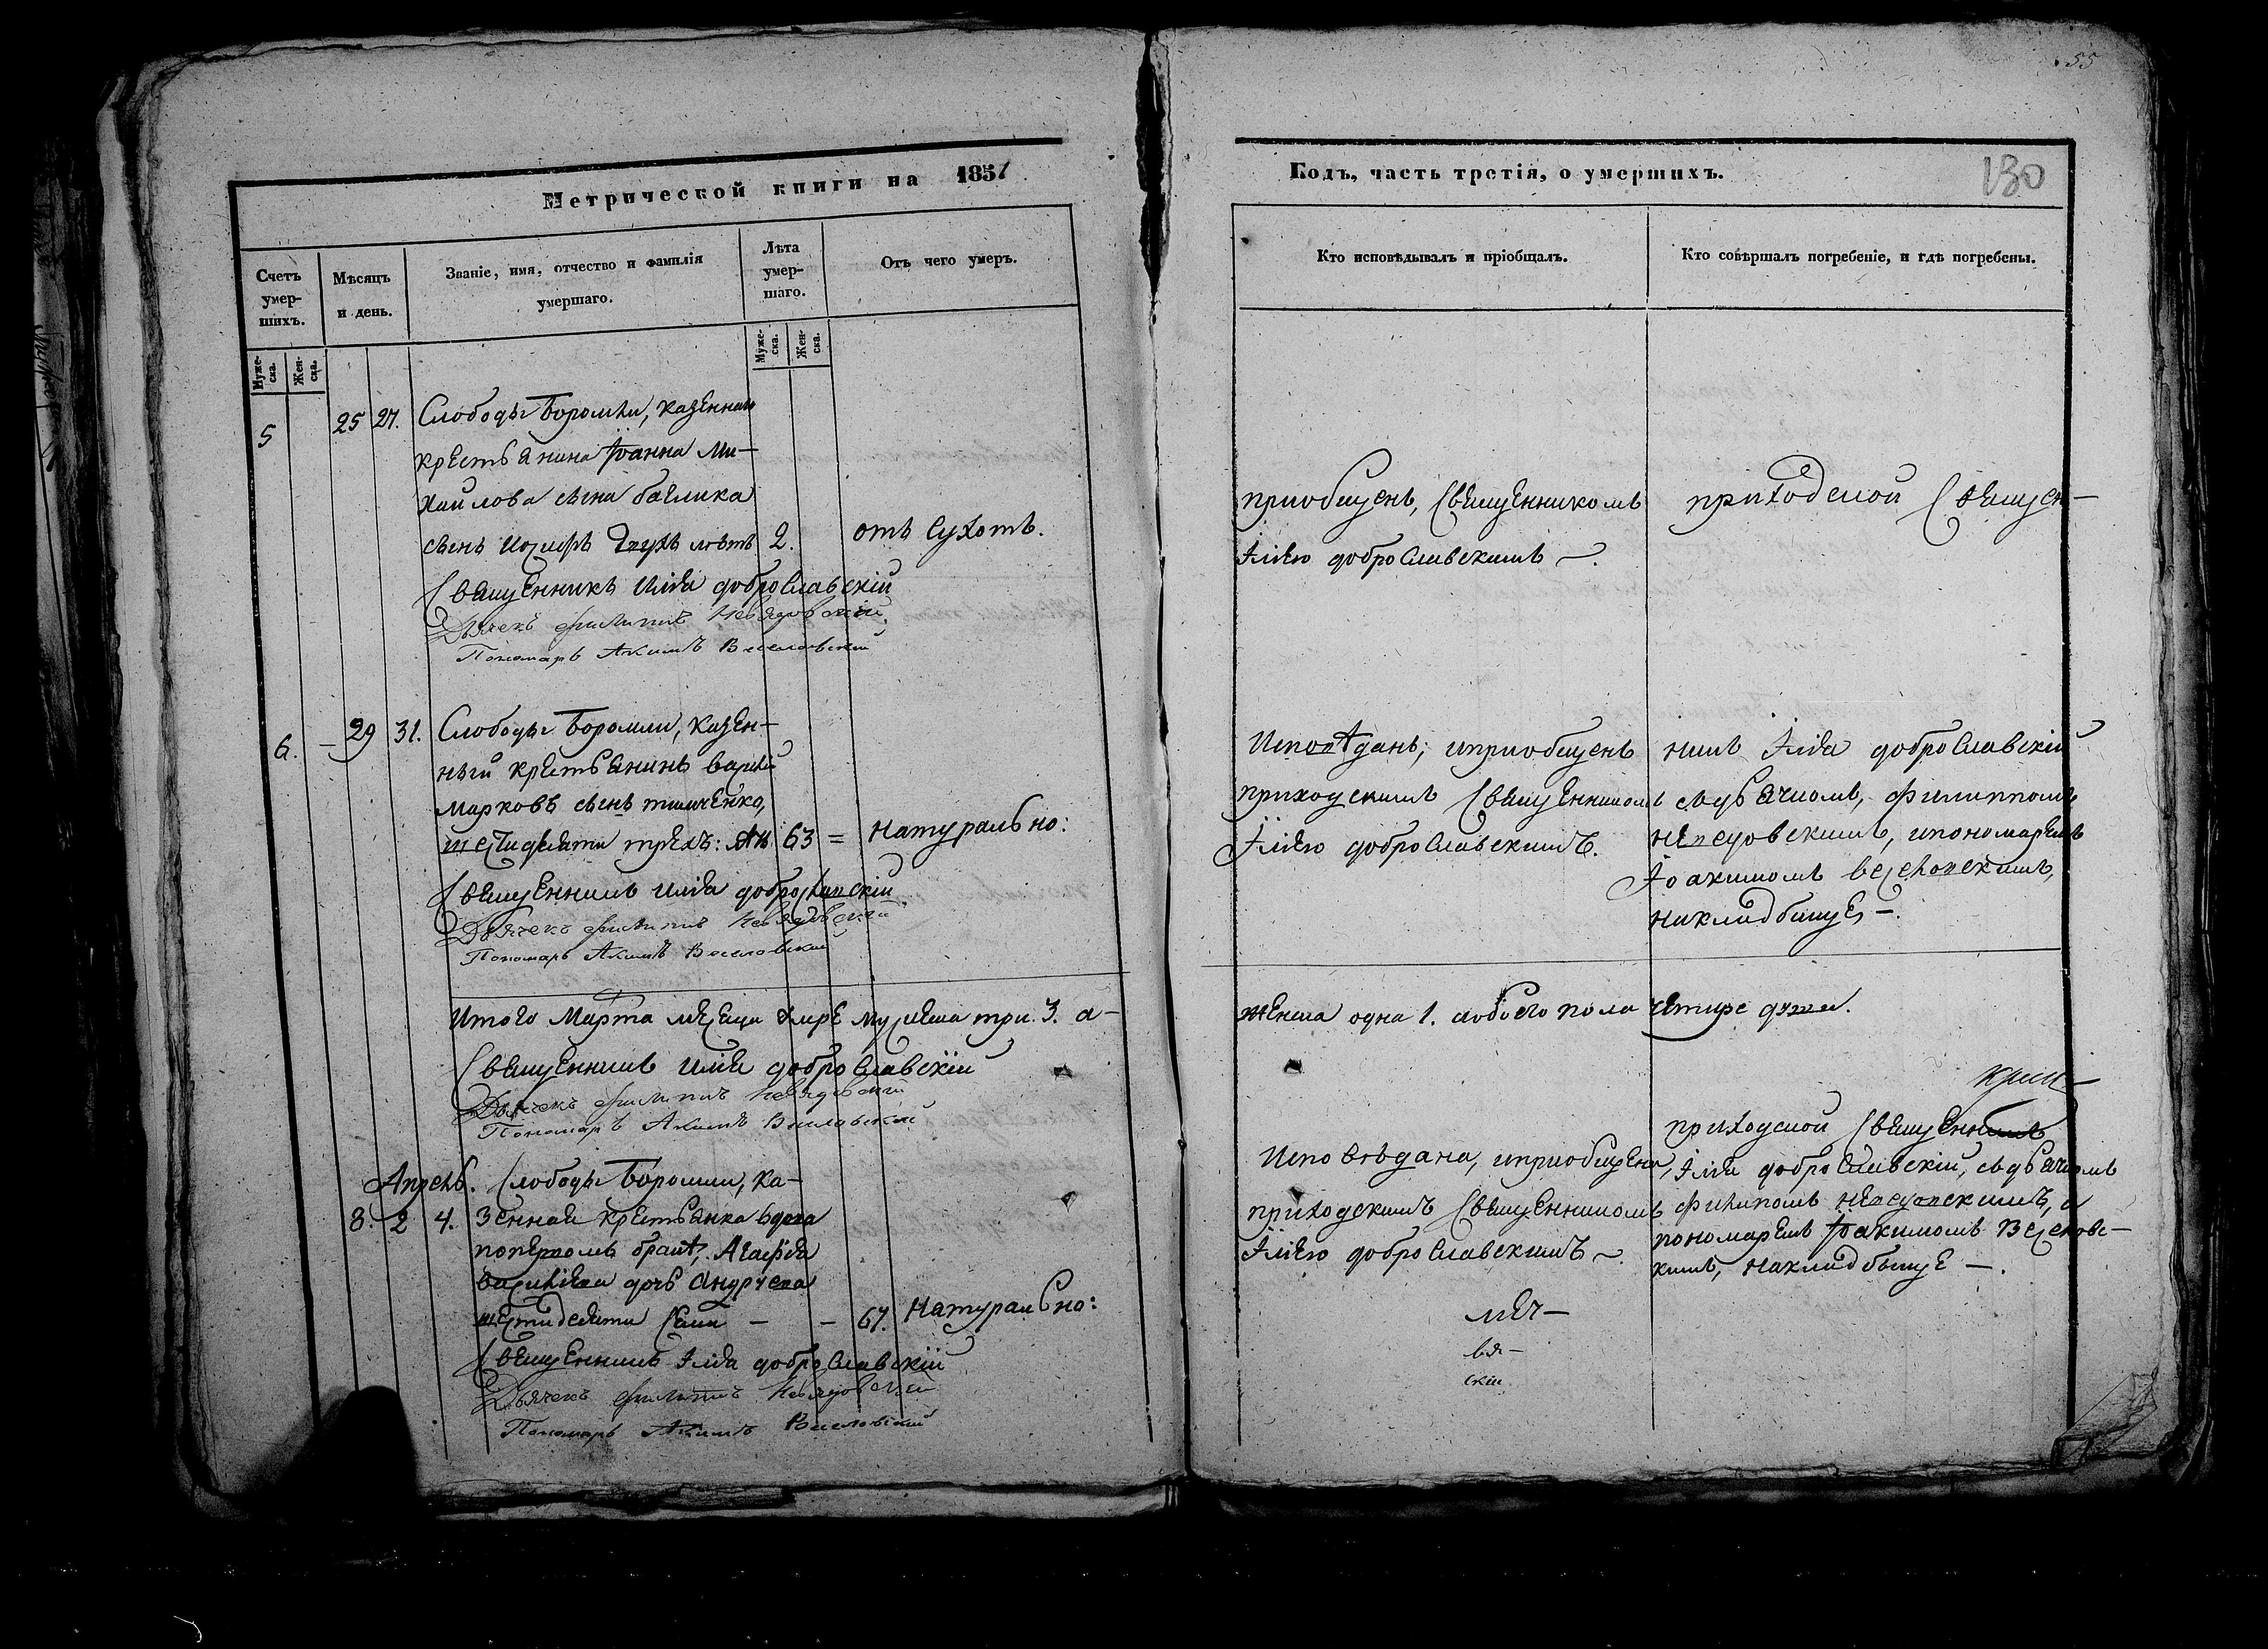 55
130
Метрической книги на 1857
Годъ, часть третія, о умершихъ.
Счетъ умер-шихъ.
Мѣсяцъ и день.
Званіе, имя, отчество и фамилія умершаго.
Лѣта умер-шаго.
Отъ чего умеръ.
Кто исповѣдывалъ и пріобщалъ.
Кто совѣршалъ погребеніе, и гдѣ погребены.
Муже-ска.
Жен-ска.
Муже-ска.
Жен-ска.
5 25 27. Слободы Боромли, казеннаго
крестьянина Іоанна Ми-
хайлова сына
сынъ Іосифъ двухъ лѣтъ 2. отъ Сухотъ.
Священникъ Илія Доброславскій
Дьячекъ Филиппъ
Пономарь Акимъ Веселовскій
пріобщенъ, Священникомъ
Іліею Доброславскимъ
приходской Священ-
6. 29 31. Слободы Боромли, казен-
ный крестьянинъ
Марковъ сынъ Тимченко,
шестидесяти трехъ: лѣ 63 = Натурально:
Священникъ Илія Доброславскій
Дьячекъ Филиппъ
Пономарь Акимъ Веселовскій
Исповѣданъ, и приобщенъ
приходскимъ Священникомъ
Іліею Доброславскимъ.
никъ Ілія Доброславскій
съ дьячкомъ, Филиппомъ
и пономаремъ
Іоакимомъ Веселовскимъ,
на кладбище —.
Итого Марта месяца умре мужеска три. 3. а-
женска одна 1. а обоего пола четыре души.
Священникъ Илія Доброславскій
Дьячекъ Филиппъ
Пономарь Акимъ Веселовскій
Апрель. Слободы Боромли, ка-
8. 2 4. зенная крестьянка вдова
по первомъ браке, Агафія
дочь
шестидесяти семи — — 67. Натурально:
Священникъ Ілія Доброславскій
Дьячекъ Филиппъ
Пономарь Акимъ Веселовскій
Исповѣдана, и приобщена,
приходскимъ Священникомъ
Іліею Доброславскимъ
приходской Священникъ
Ілія Доброславскій, съ дьячкомъ
Филипомъ и
пономаремъ Іоакимомъ Веселовс-
кимъ, на кладбище —.
вя-
скій